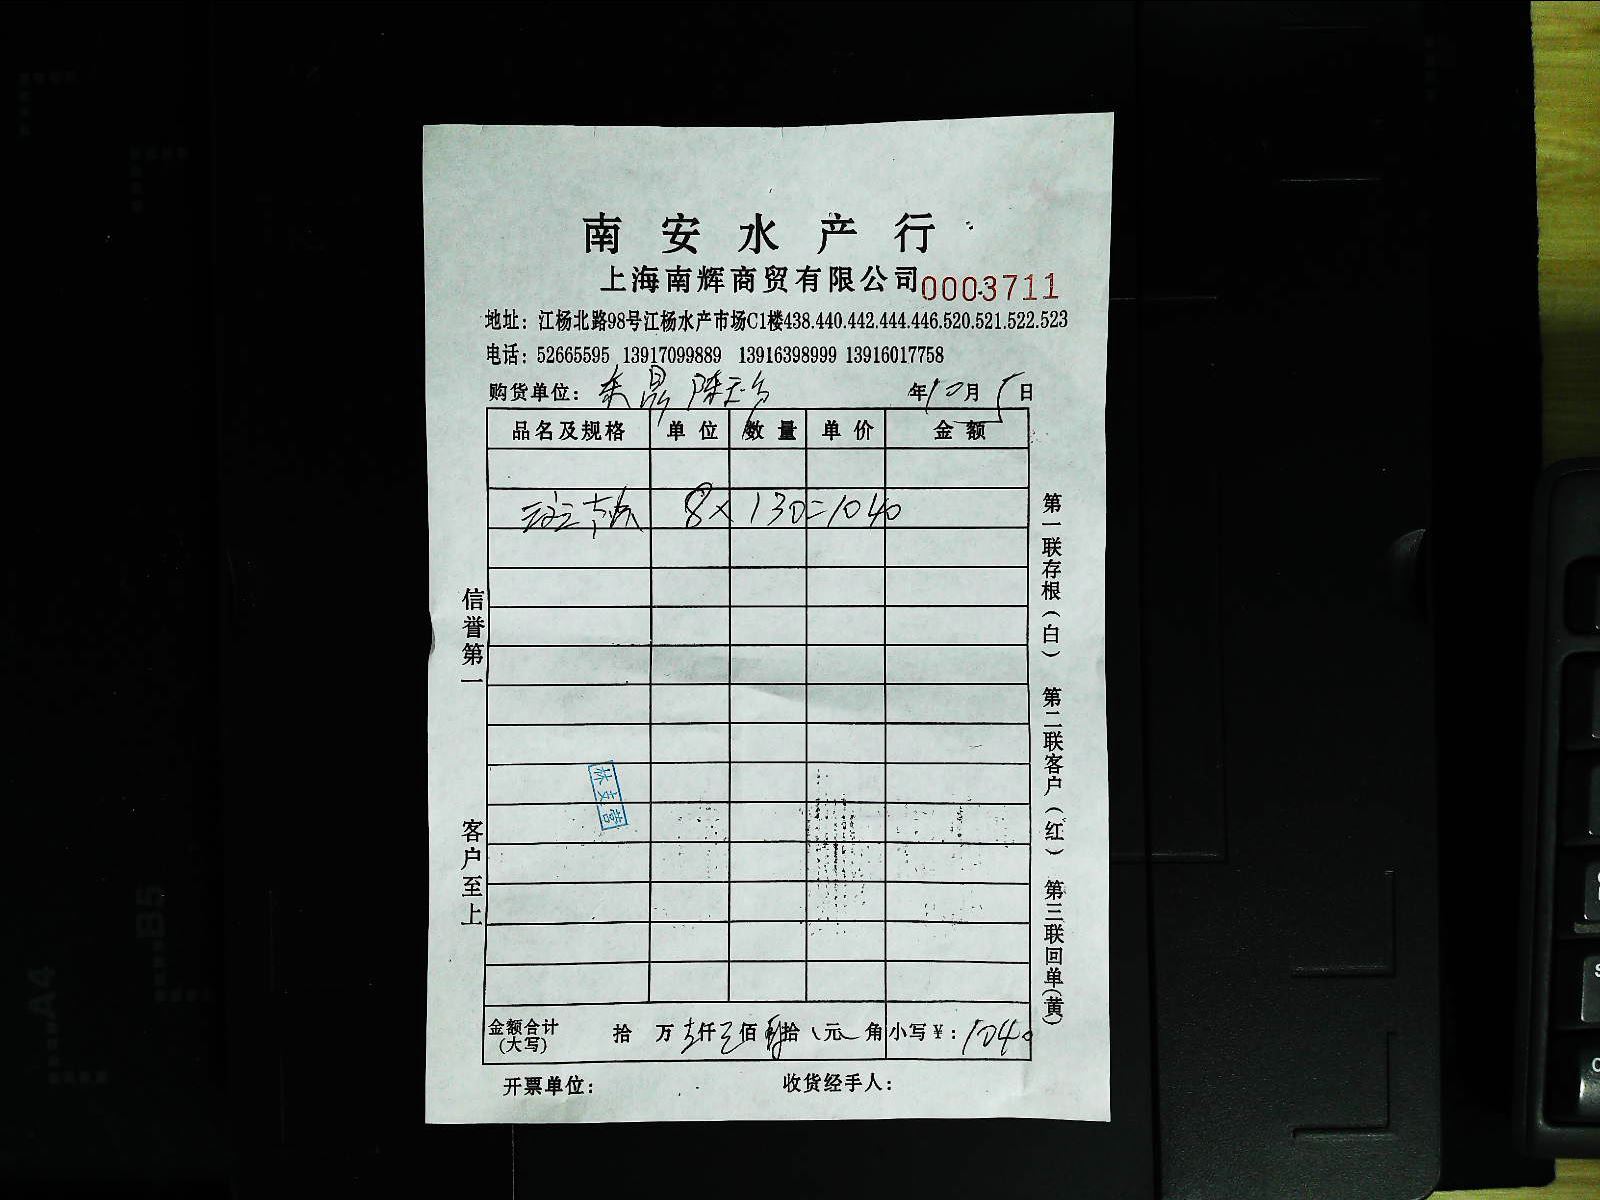 南安水产行
上海南辉商贸有限公司 0003711
地址：江杨北路98号江杨水产市场C1楼438.440.442.444.446.520.521.522.523
电话：52665595 13917099889 13916398999 13916017758
购货单位： 年10月 日
品名及规格 单位 数量 单价 金额
8×130=1040
信誉第一
客户至上
林文营
第一联存根（白） 第二联客户（红） 第三联回单（黄）
金额合计（大写） 拾 万 仟 佰 拾 元 角 小写¥：1040
开票单位： 收货经手人：